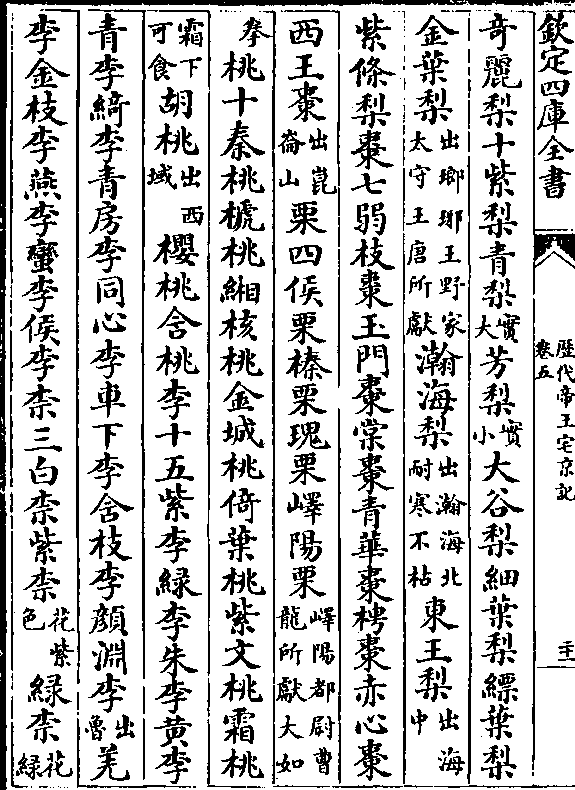 欽定四庫全書
歴代帝王宅京記
卷五
奇麗梨十紫梨青梨實大芳梨實小大谷梨細葉梨縹葉梨
金葉梨出瑯琊王野家太守王唐所獻瀚海梨出瀚海北耐寒不枯東王梨出海中
紫條梨棗七弱枝棗玉門棗棠棗青華棗梬棗赤心棗
西王棗出崑崙山栗四侯栗榛栗瑰栗嶧陽栗嶧陽都尉曹龍所獻大如
拳桃十秦桃榹桃緗核桃金城桃倚葉桃紫文桃霜桃
霜下可食胡桃出西域櫻桃含桃李十五紫李綠李朱李黃李
青李綺李青房李同心李車下李含枝李顔淵李出魯羌
李金枝李燕李蠻李侯李柰三白柰紫柰花紫色綠柰花綠